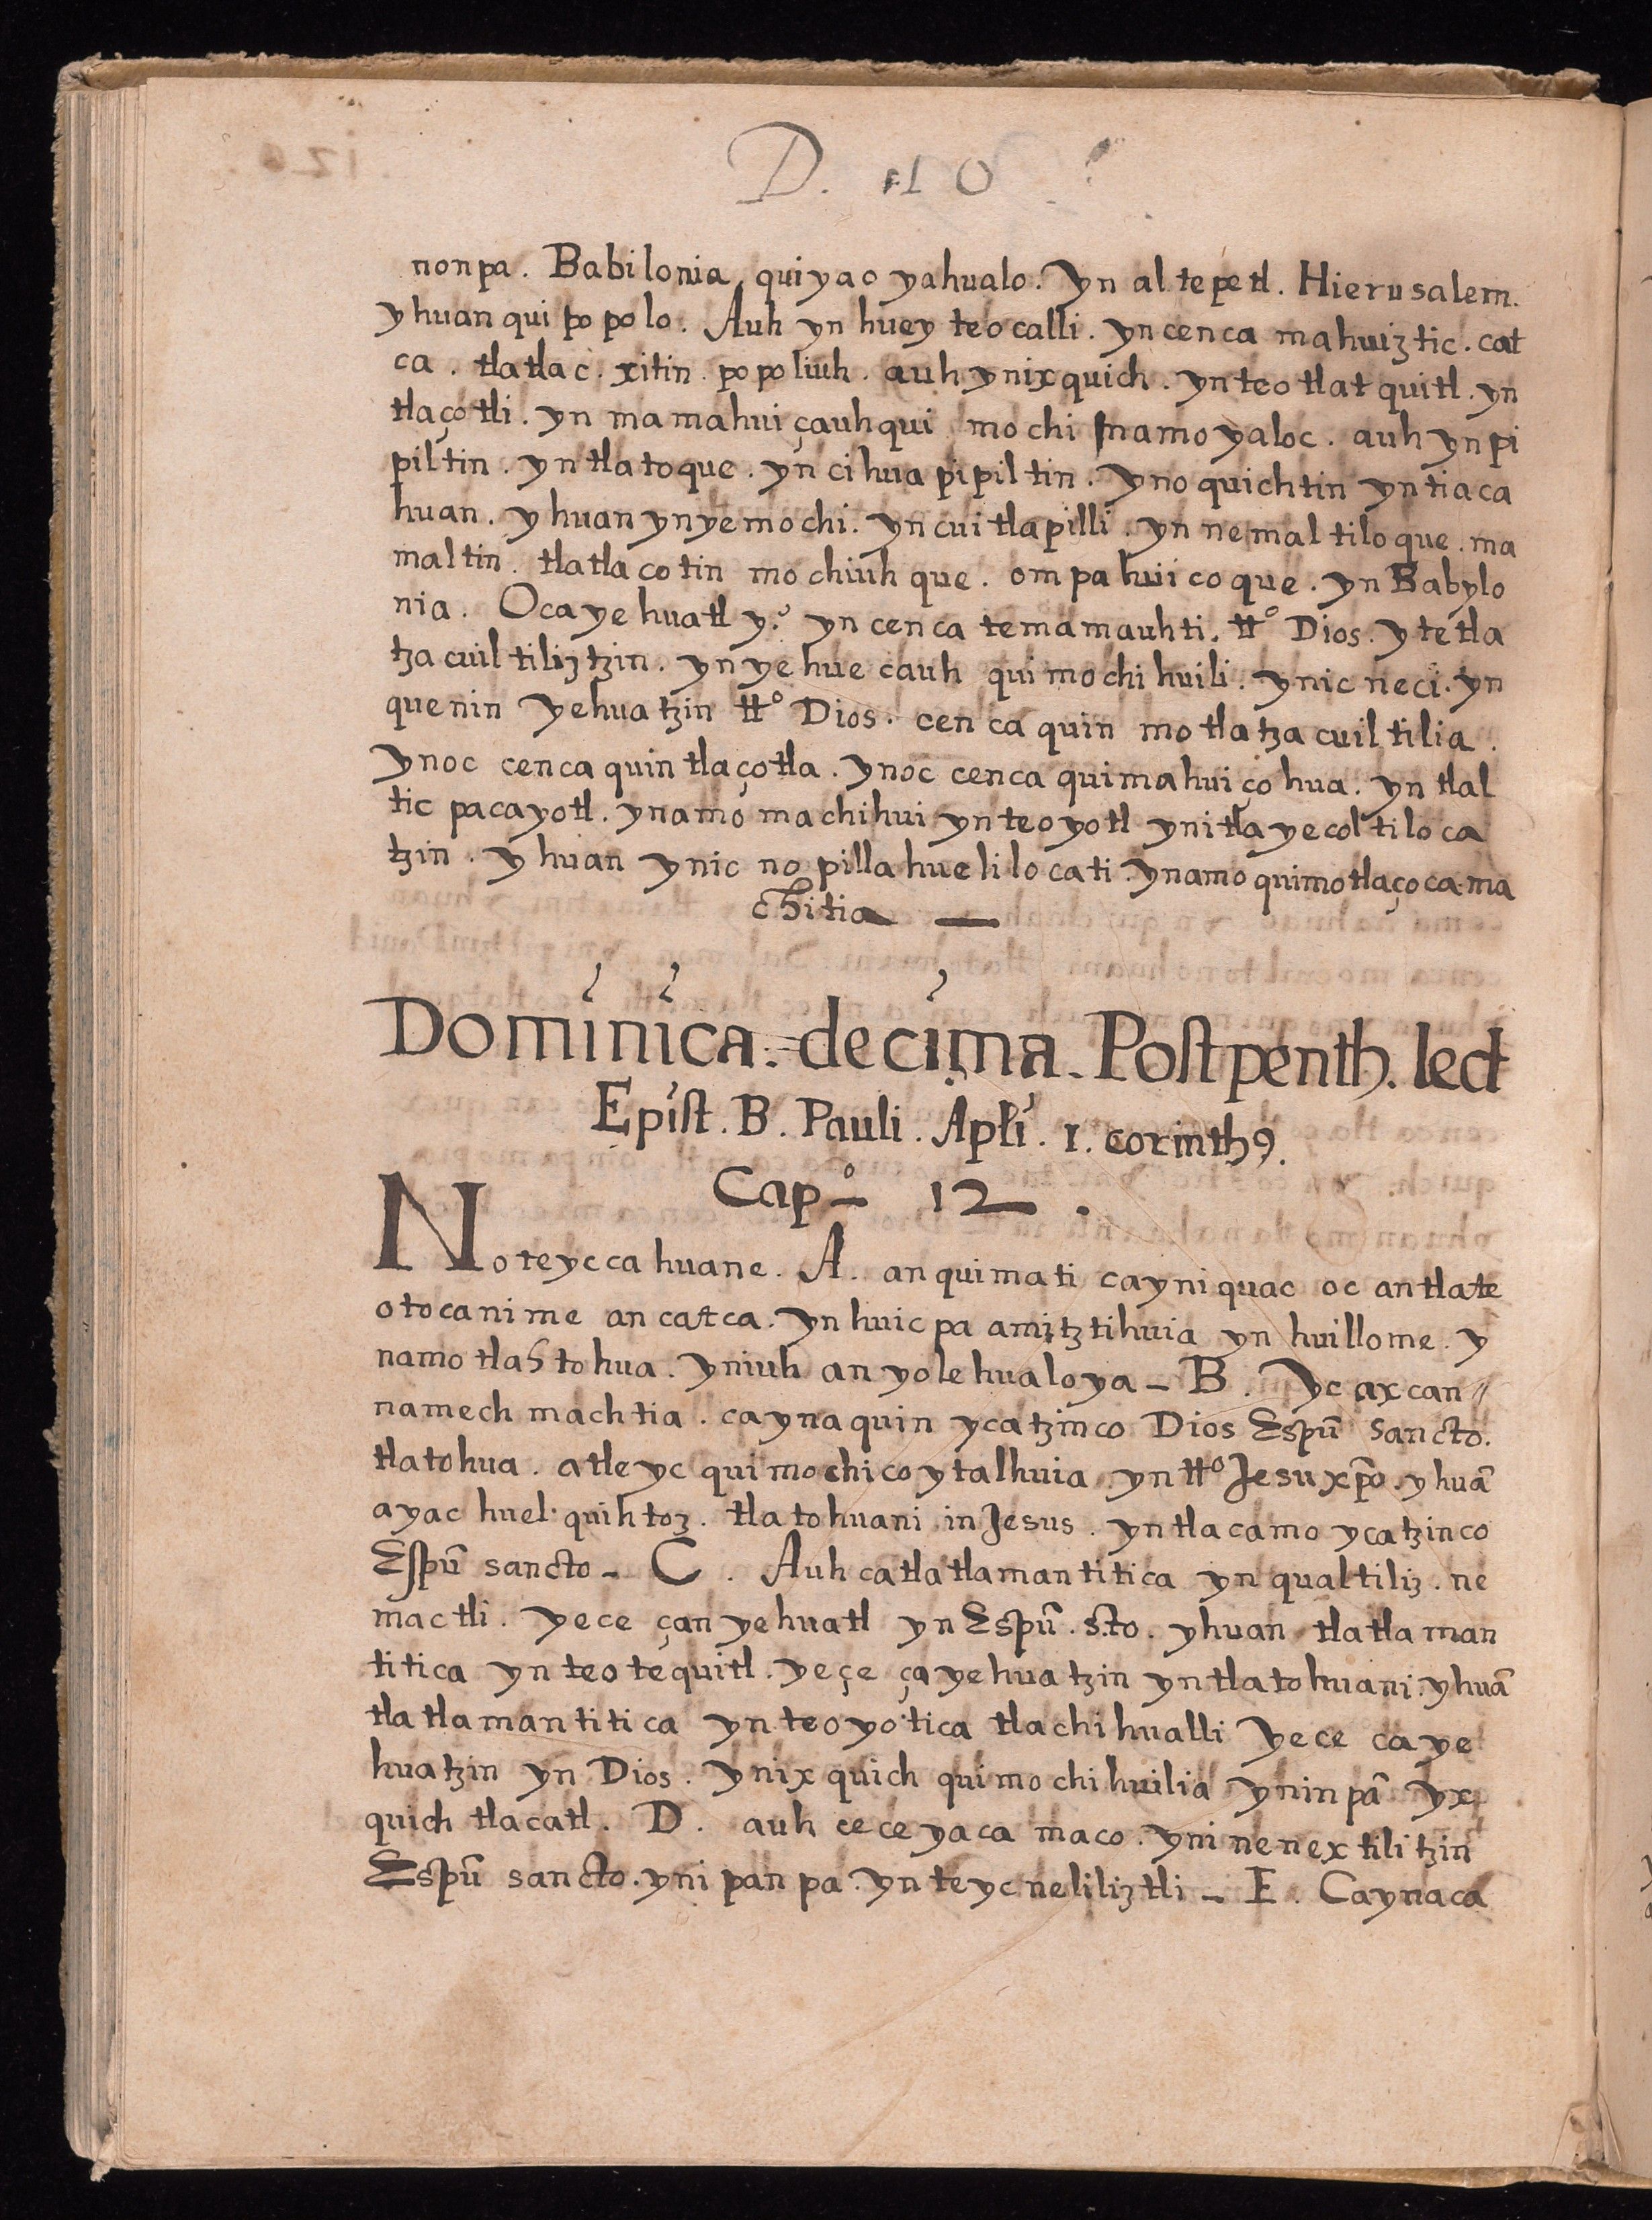 D. 10
nonpa. Babilonia, quiyao yahualo. Yn altepetl. Hierusalem.
yhuan quipopolo. Auh yn huey teocalli. yn cenca mahuiztic. cat
ca. tlatlac. xitin. popoliuh. auh ynixquich. yn teotlatquitl. yn
tlaçotli. yn mamahuiçauhqui mochi namoyaloc. auh yn pi
piltin. yn tlatoque. yn cihuapipiltin. ynoquichtin yn tiaca
huan. yhuan ynyemochi. yn cuitlapilli. yn nemaltiloque. ma
maltin. tlatlacotin mochiuhque. ompa huicoque. yn Babylo
nia. Oca yehuatl y.º yn cenca temamauhti. ttº Dios. ytetla
tzacuiltiliztzin. ynyehuecauh quimochihuili. ynic neci. yn
quenin yehuatzin ttº Dios. cenca quinmotlatzacuiltilia.
ynoc cenca quintlaçotla. ynoc cenca quimahuiçohua. yn tlal
ticpacayotl. ynamo machihui ynteoyotl ynitlayecoltiloca
tzin. yhuan ynic nopillahuelilocati. ynamo quimotlaçocama
chitia —
Dominica. decima. Postpenth. lect
Epist. B. Pauli. Apłi. 1. corinth9.
Capº 12.
Noteyccahuane. A. anquimati cayniquac oc antlate
otocanime ancatca. ynhuicpa amitztihuia yn huillome. y
namo tlahtohua. yniuh anyolehualoya – B. Yc axcan //
namechmachtia. caynaquin ycatzinco Dios Espũ Sancto.
tlatohua. atleyc quimochicoytalhuia yn ttº Jesu xp̃o. yhuã
ayac huel quihtoz. tlatohuani in Jesus. yntlacamo ycatzinco
Espũ sancto – C. Auh catlatlamantitica yn qualtiliz. ne
mactli. yece çan yehuatl yn Espũ. S.to. yhuan tlatlaman
titica yn teotequitl. yeçe ça yehuatzin yn tlatohuani. yhuã
tlatlamantitica yn teoyotica tlachihualli yece caye
huatzin yn Dios. ynixquich quimochihuilia yninpã yx
quich tlacatl. D. auh ceceyaca maco. yninenextilitzin
Espũ sancto. ynipanpa. yn teycneliliztli – E. Caynaca